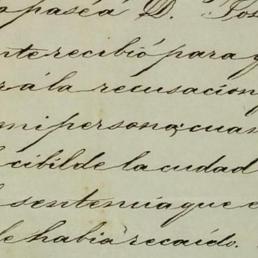 o pasé á D. Jos
nte recibió para q
rá la recusacion
mi persona; cuan
l cibil de la ciudad
l sentencia que e
le habia recaido.